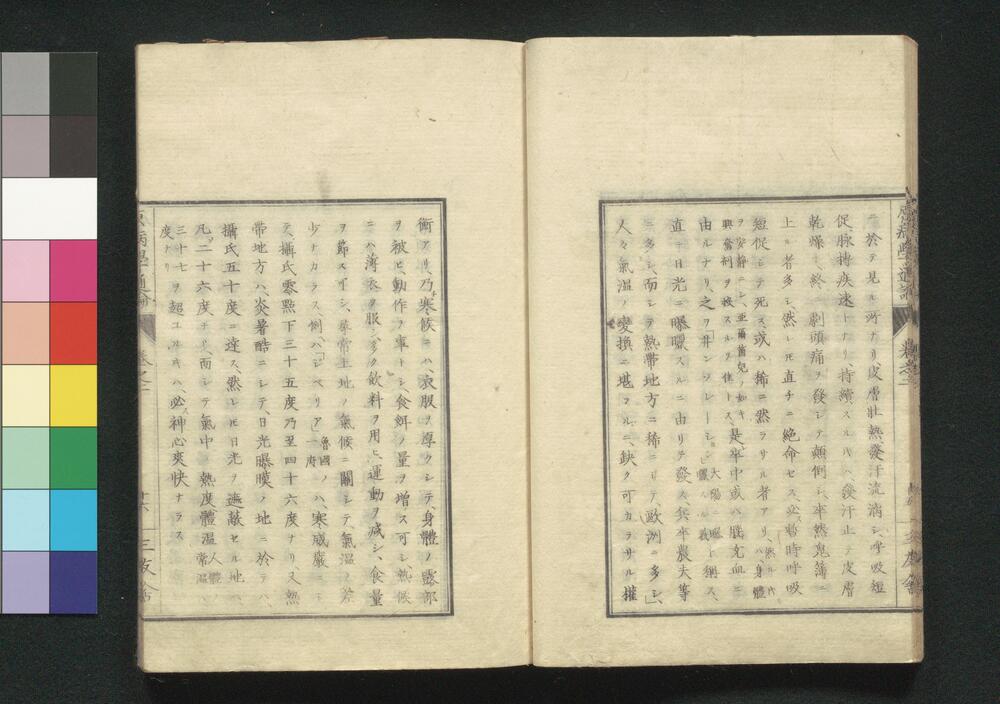 ニ於テ見ル所ナリ皮膚壮熱發汗流滴シ、呼吸短
促脉搏疾速トナリ持續スル時ハ發汗止テ皮膚
乾燥シ、終ニ劇頭痛ヲ發シテ顛倒シ、卒然鬼籍ニ
上ル者多シ然レ𪜈直チニ絶命セス、必暫時呼吸
短促シテ死ス、或ハ稀ニ然ラサル者アリ、
ヲ安静ニシ、亜爾箇兒ノ如キ
興奮剤ヲ投スルヲ佳トス、是卒中或ハ脳充血ニ
由ルナリ、之ヲ「インソレーション」
ト稱ス、
直ニ日光ニ曝曬スルニ由リテ發ス兵卒農夫等
ニ多シ、而シテ熱帯地方ニ稀ニシテ歐洲ニ多シ」、
人々氣温ノ變換ニ堪フルニ、缺ク可カラサル權
原病學通論
三友舎
衡アリ、乃寒候ニハ、衣服ヲ厚クシテ、身體ノ露部
ヲ被ヒ、動作ヲ專トシ、食餌ノ量ヲ增ス可シ、熱候
ニハ、薄衣ヲ服シ、多ク飲料ヲ用ヒ、運動ヲ減シ、食量
ヲ節スベシ、尋常土地ノ氣候ニ關シテ、氣温ノ差
少ナカラス、例ハ「シベリア」
魯國ノ
一府
ハ、寒威嚴ニシ
テ、攝氏零點下三十五度乃至四十六度ナリ、又熱
帯地方ハ、炎暑酷ニシテ、日光曝暵ノ地ニ於テハ、
攝氏五十度ニ達ス、然レ𪜈日光ヲ遮蔽セル地ハ、
凡二十六度ナリ、而シテ氣中ノ熱度體温
人體
常温ハ
三十七
度ナリ
ヲ超ユル時ハ、必ス神心爽快ナラス